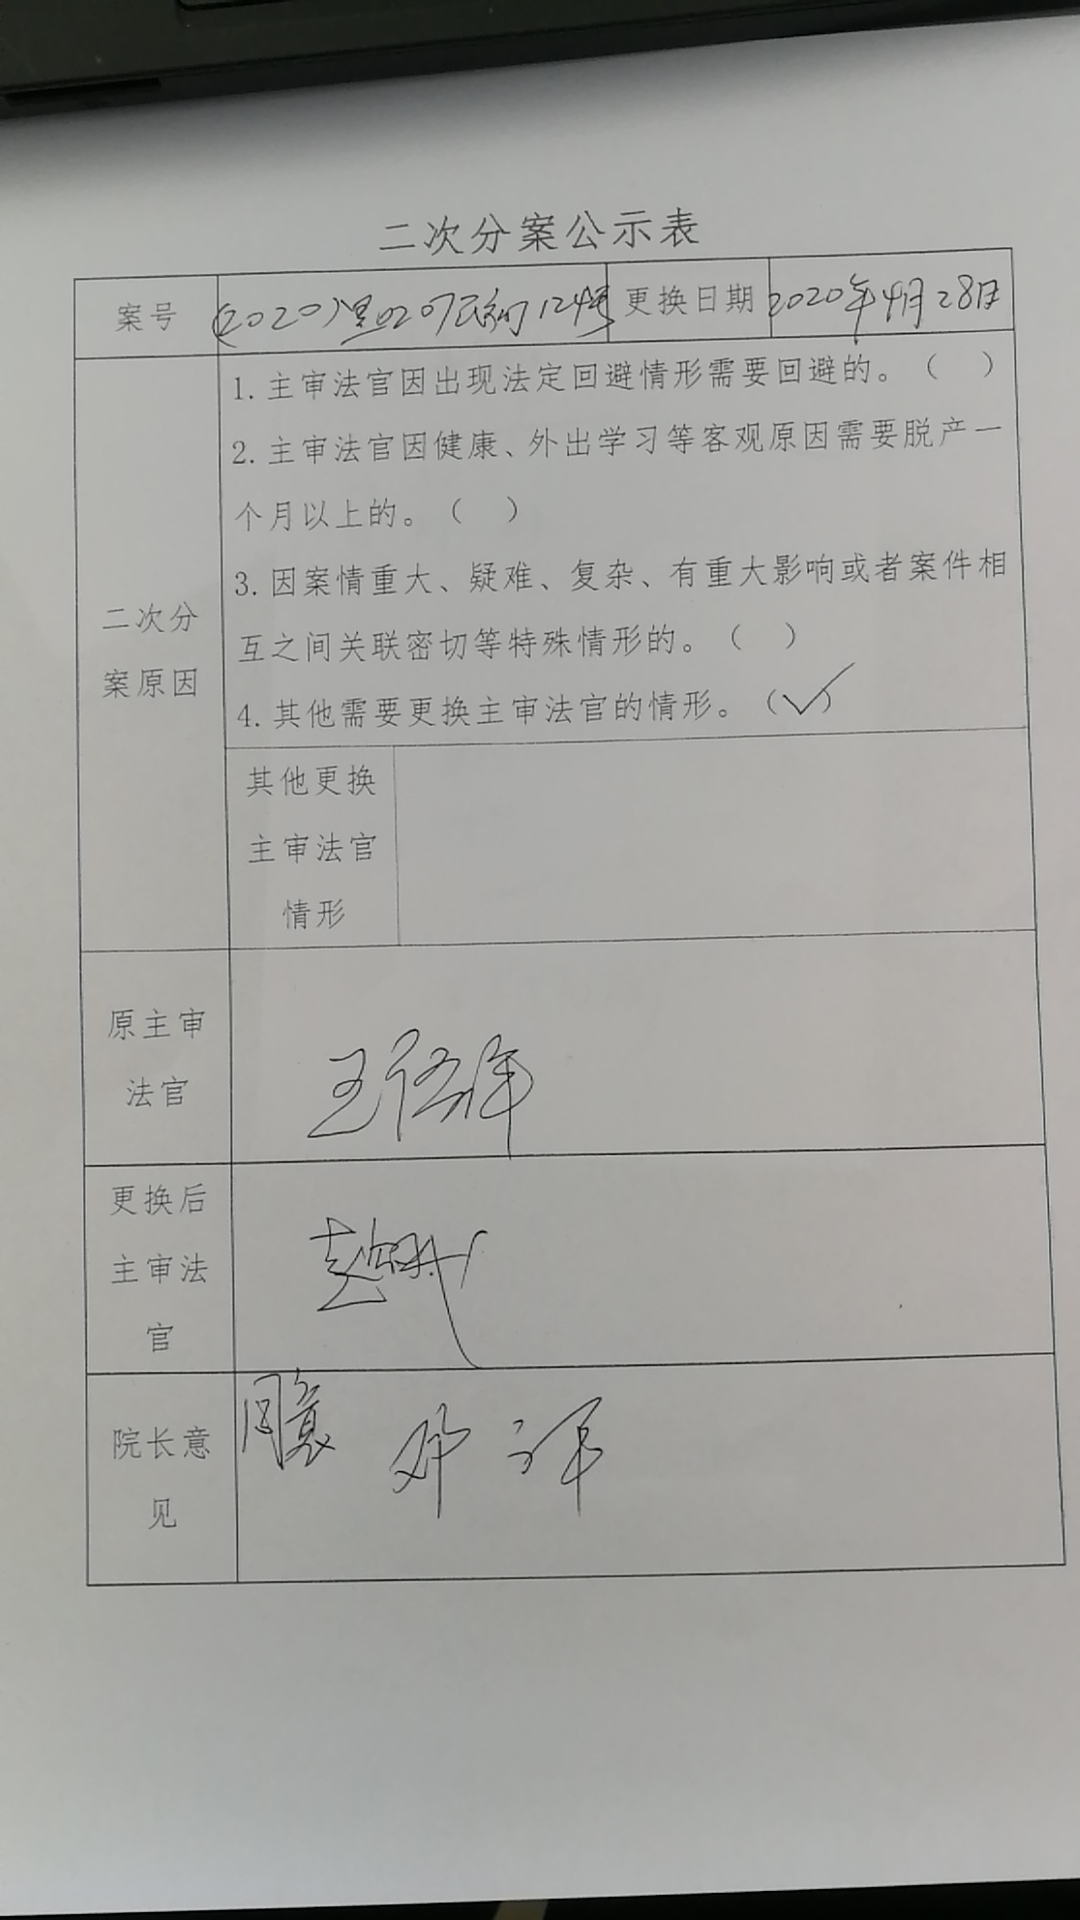 二次分案公示表
案号
(2020)黑0207民初124号
更换日期
2020年4月28日
二次分
案原因
1.主审法官因出现法定回避情形需要回避的。（ ）
2.主审法官因健康、外出学习等客观原因需要脱产一
个月以上的。（ ）
3.因案情重大、疑难、复杂、有重大影响或者案件相
互之间关联密切等特殊情形的。（ ）
4.其他需要更换主审法官的情形。（✓）
其他更换
主审法官
情形
原主审
法官
王
更换后
主审法
官
赵
院长意
见
同意
邓